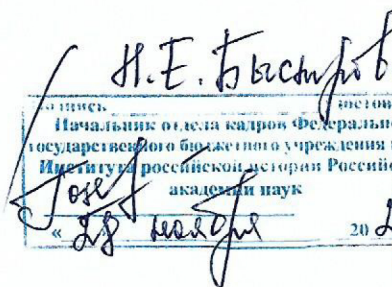 Н.Е. Быстров
Начальник отдела кадров Федерально
государственного бюджетного учреждения
Института российской истории Российс
академии наук
« 28 ноября 20 2